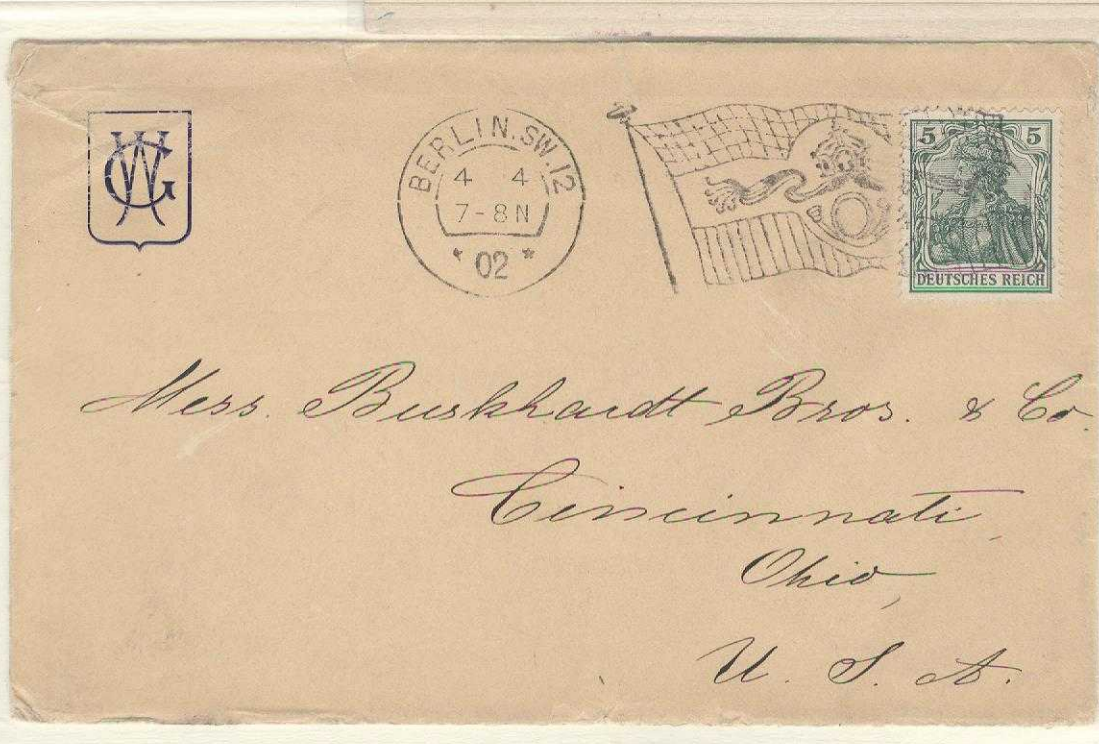 BERLIN.SW.12
4 4
7-8N
* 02 *
5 5
DEUTSCHES REICH
Mess. Burkhardt Bros. & Co.
Cincinnati,
Ohio,
U. S. A.